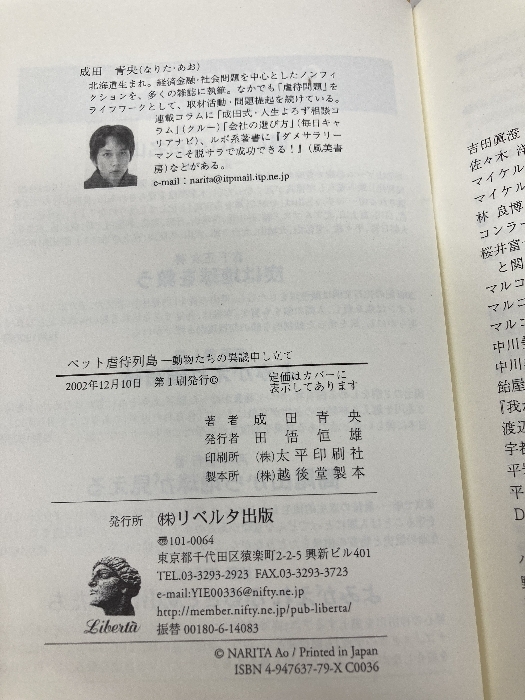 成田 青央(なりた・あお)
北海道生まれ。経済金融・社会問題を中心としたノンフィ
クションを、多くの雑誌に執筆。なかでも『虐待問題』を
ライフワークとして、取材活動・問題提起を続けている。
連載コラムに「成田式・人生よろず相談コ
ラム」(クルー)「会社の選び方」(毎日キャ
リアナビ)、ルポ系著書に『ダメサラリー
マンこそ脱サラで成功できる!』(風美書
房)などがある。
e-mail:narita@itpmail.itp.ne.jp
ペット虐待列島―動物たちの異議申し立て
2002年12月10日 第1刷発行©
定価はカバーに
表示してあります
著者 成田青央
発行者 田悟恒雄
印刷所 (株)太平印刷社
製本所 (株)越後堂製本
発行所 ㈱リベルタ出版
〠101-0064
東京都千代田区猿楽町2-2-5 興新ビル401
TEL.03-3293-2923 FAX.03-3293-3723
e-mail:YIE00336@nifty.ne.jp
http://member.nifty.ne.jp/pub-liberta/
振替 00180-6-14083
Libertà
© NARITA Ao / Printed in Japan
ISBN 4-947637-79-X C0036
吉田眞澄
佐々木 洋
マイケル
マイケル
林 良博
コンラー
桜井富士
と関
マルコ
マルコ
マルコ
中川
中川
飴屋
『我が
渡辺
宇都
平
平
D